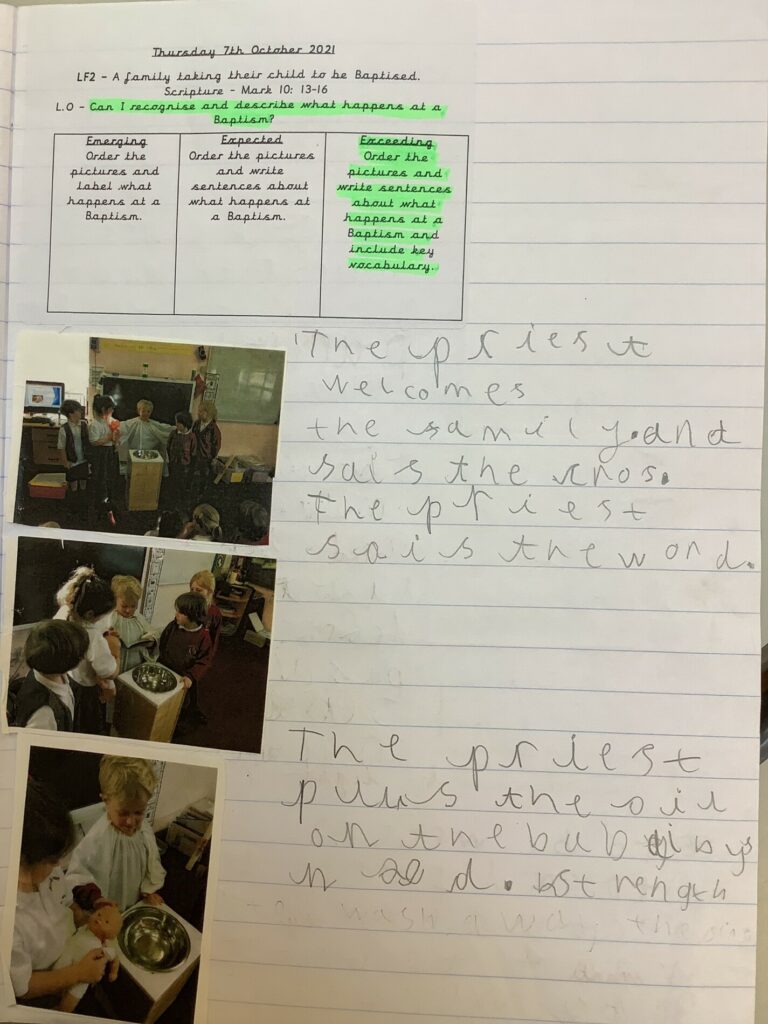 Thursday 7th October 2021
LF2 - A family taking their child to be Baptised.
Scripture - Mark 10: 13-16
L.O - Can I recognise and describe what happens at a
Baptism?
Emerging
Order the
pictures and
label what
happens at a
Baptism.
Expected
Order the pictures
and write
sentences about
what happens at
a Baptism.
Exceeding
Order the
pictures and
write sentences
about what
happens at a
Baptism and
include key
vocabulary.
The priest
welcomes
the samily.and
sais the cros.
The priest
sais the word.
The priest
puus the oil
on the
d. strength
wash away the